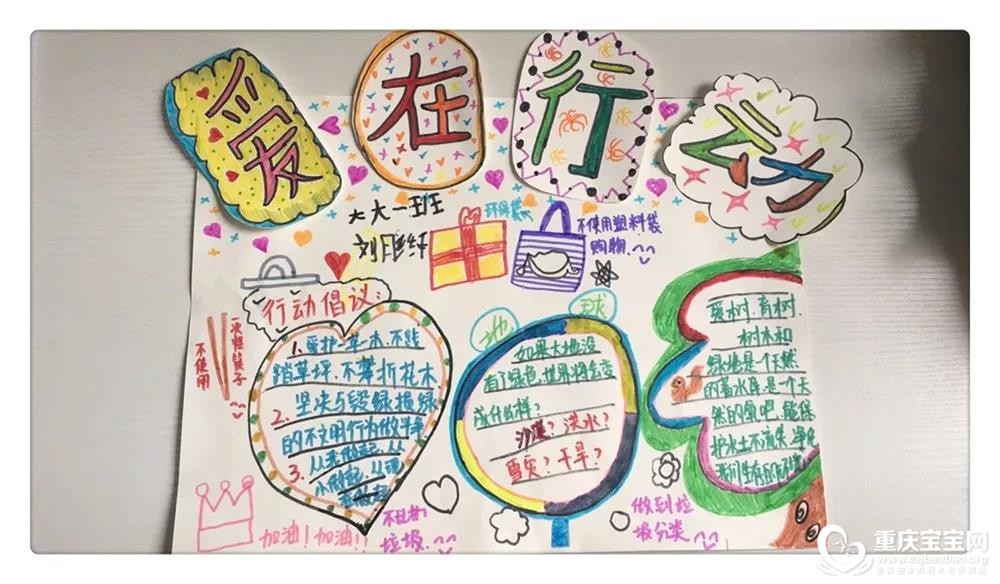 爱在行动
大大一班
环保袋
不使用塑料袋
购物
行动倡议:
不使用
一次性筷子
1. 爱护一草一木、不践
踏草坪、不攀折花木
2. 坚决与毁绿损绿
的不文明行为做斗争
3. 从我做起,从
小做起,从现
在做起
地球
如果大地没
有了绿色,世界将会变
成什么样?
沙漠?洪水?
雪灾?干旱?
爱树、育树、
树木和
绿地是个天然
的蓄水库,是个天
然的氧吧,能保
护水土不流失、净化
我们生存的环境
加油!加油!!
不乱扔
垃圾
做到垃
圾分类
重庆宝宝网
www.cqbaobao.org